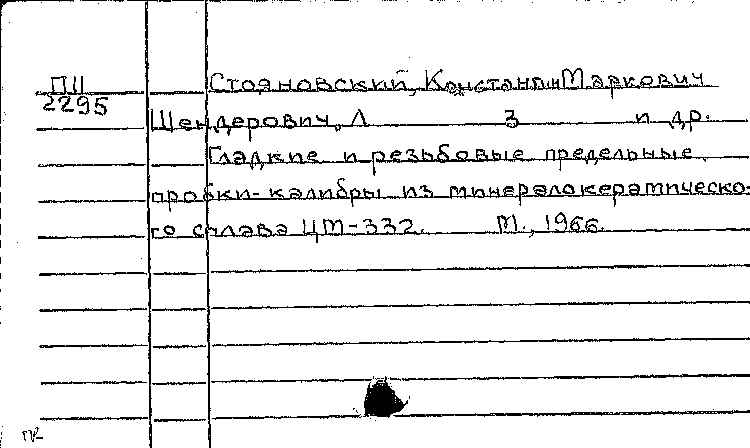 П11 Стояновский, Константин Маркович
2295
Шендерович, Л З и др.
Гладкие и резьбовые предельные
пробки-калибры из минералокерамическо-
го сплава ЦМ-332. М., 1966.